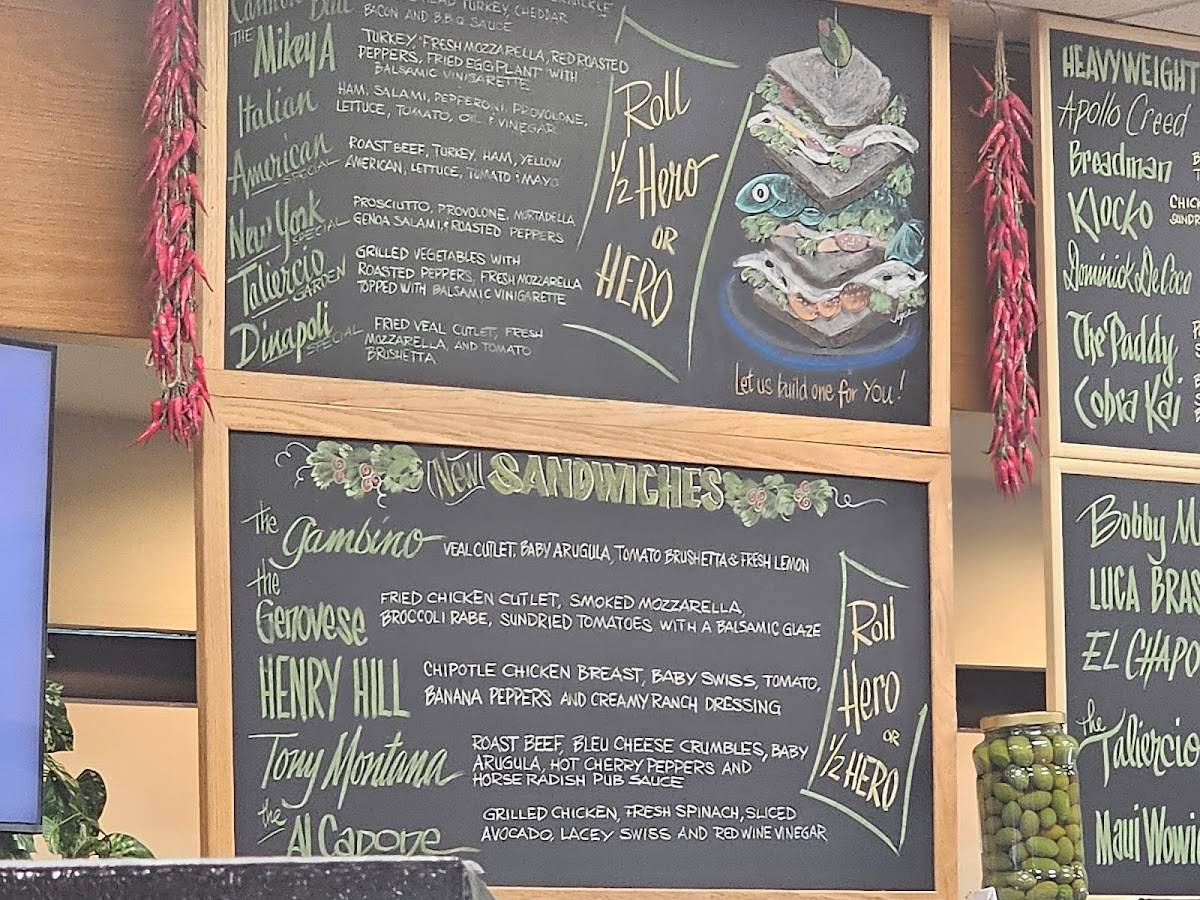 Cannon Ball
TURKEY, CHEDDAR
BACON AND B.B.Q SAUCE
THE Mikey A
TURKEY, FRESH MOZZARELLA, RED ROASTED
PEPPERS, FRIED EGGPLANT WITH
BALSAMIC VINIGARETTE
Italian
HAM, SALAMI, PEPPERONI, PROVOLONE,
LETTUCE, TOMATO, OIL & VINEGAR
American SPECIAL
ROAST BEEF, TURKEY, HAM, YELLOW
AMERICAN, LETTUCE, TOMATO & MAYO
New York SPECIAL
PROSCIUTTO, PROVOLONE, MORTADELLA
GENOA SALAMI, & ROASTED PEPPERS
Taliercio GARDEN
GRILLED VEGETABLES WITH
ROASTED PEPPERS, FRESH MOZZARELLA
TOPPED WITH BALSAMIC VINIGARETTE
Dinapoli SPECIAL
FRIED VEAL CUTLET, FRESH
MOZZARELLA, AND TOMATO
BRUSHETTA
Roll
1/2 Hero
OR
HERO
Let us build one for you!
New SANDWICHES
The Gambino
VEAL CUTLET, BABY ARUGULA, TOMATO BRUSHETTA & FRESH LEMON
the
Genovese
FRIED CHICKEN CUTLET, SMOKED MOZZARELLA,
BROCCOLI RABE, SUNDRIED TOMATOES WITH A BALSAMIC GLAZE
HENRY HILL
CHIPOTLE CHICKEN BREAST, BABY SWISS, TOMATO,
BANANA PEPPERS AND CREAMY RANCH DRESSING
Tony Montana
ROAST BEEF, BLEU CHEESE CRUMBLES, BABY
ARUGULA, HOT CHERRY PEPPERS AND
HORSERADISH PUB SAUCE
the Al Capone
GRILLED CHICKEN, FRESH SPINACH, SLICED
AVOCADO, LACEY SWISS AND RED WINE VINEGAR
Roll
Hero
OR
1/2 HERO
HEAVYWEIGHT
Apollo Creed
Breadman
Klocko
CHICK
SUNDR
Dominick DeCoco
The Paddy
Cobra Kai
Bobby M
LUCA BRAS
EL CHAPO
the Taliercio
Maui Wowi